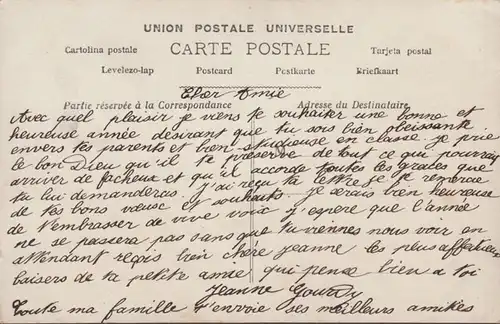 UNION POSTALE UNIVERSELLE
Cartolina postale CARTE POSTALE Tarjeta postal
Levelezo-lap Postcard Postkarte Briefkaart
Cher Amie
Partie réservée à la Correspondance Adresse du Destinataire
Avec quel plaisir je viens te souhaiter une bonne et
heureuse année désirant que tu sois bien obeissante
envers tes parents et bien studieuse en classe je prie
le bon Dieu qu'il te préserve de tout ce que pourrait
arriver de facheux et qu'il accorde toutes les graces que
tu lui demanderas. J'ai reçu ta lettre je te remercie
de tes bons vœux et souhaits. Je serais bien heureuse
de t'embrasser de vive voix j'espere que l'année
ne se passera pas sans que tu viennes nous voir en
attendant reçois bien chere jeanne les plus affectueux
baisers de ta petite amie qui pense bien a toi
Jeanne
Toute ma famille t'envoie ses meilleurs amities